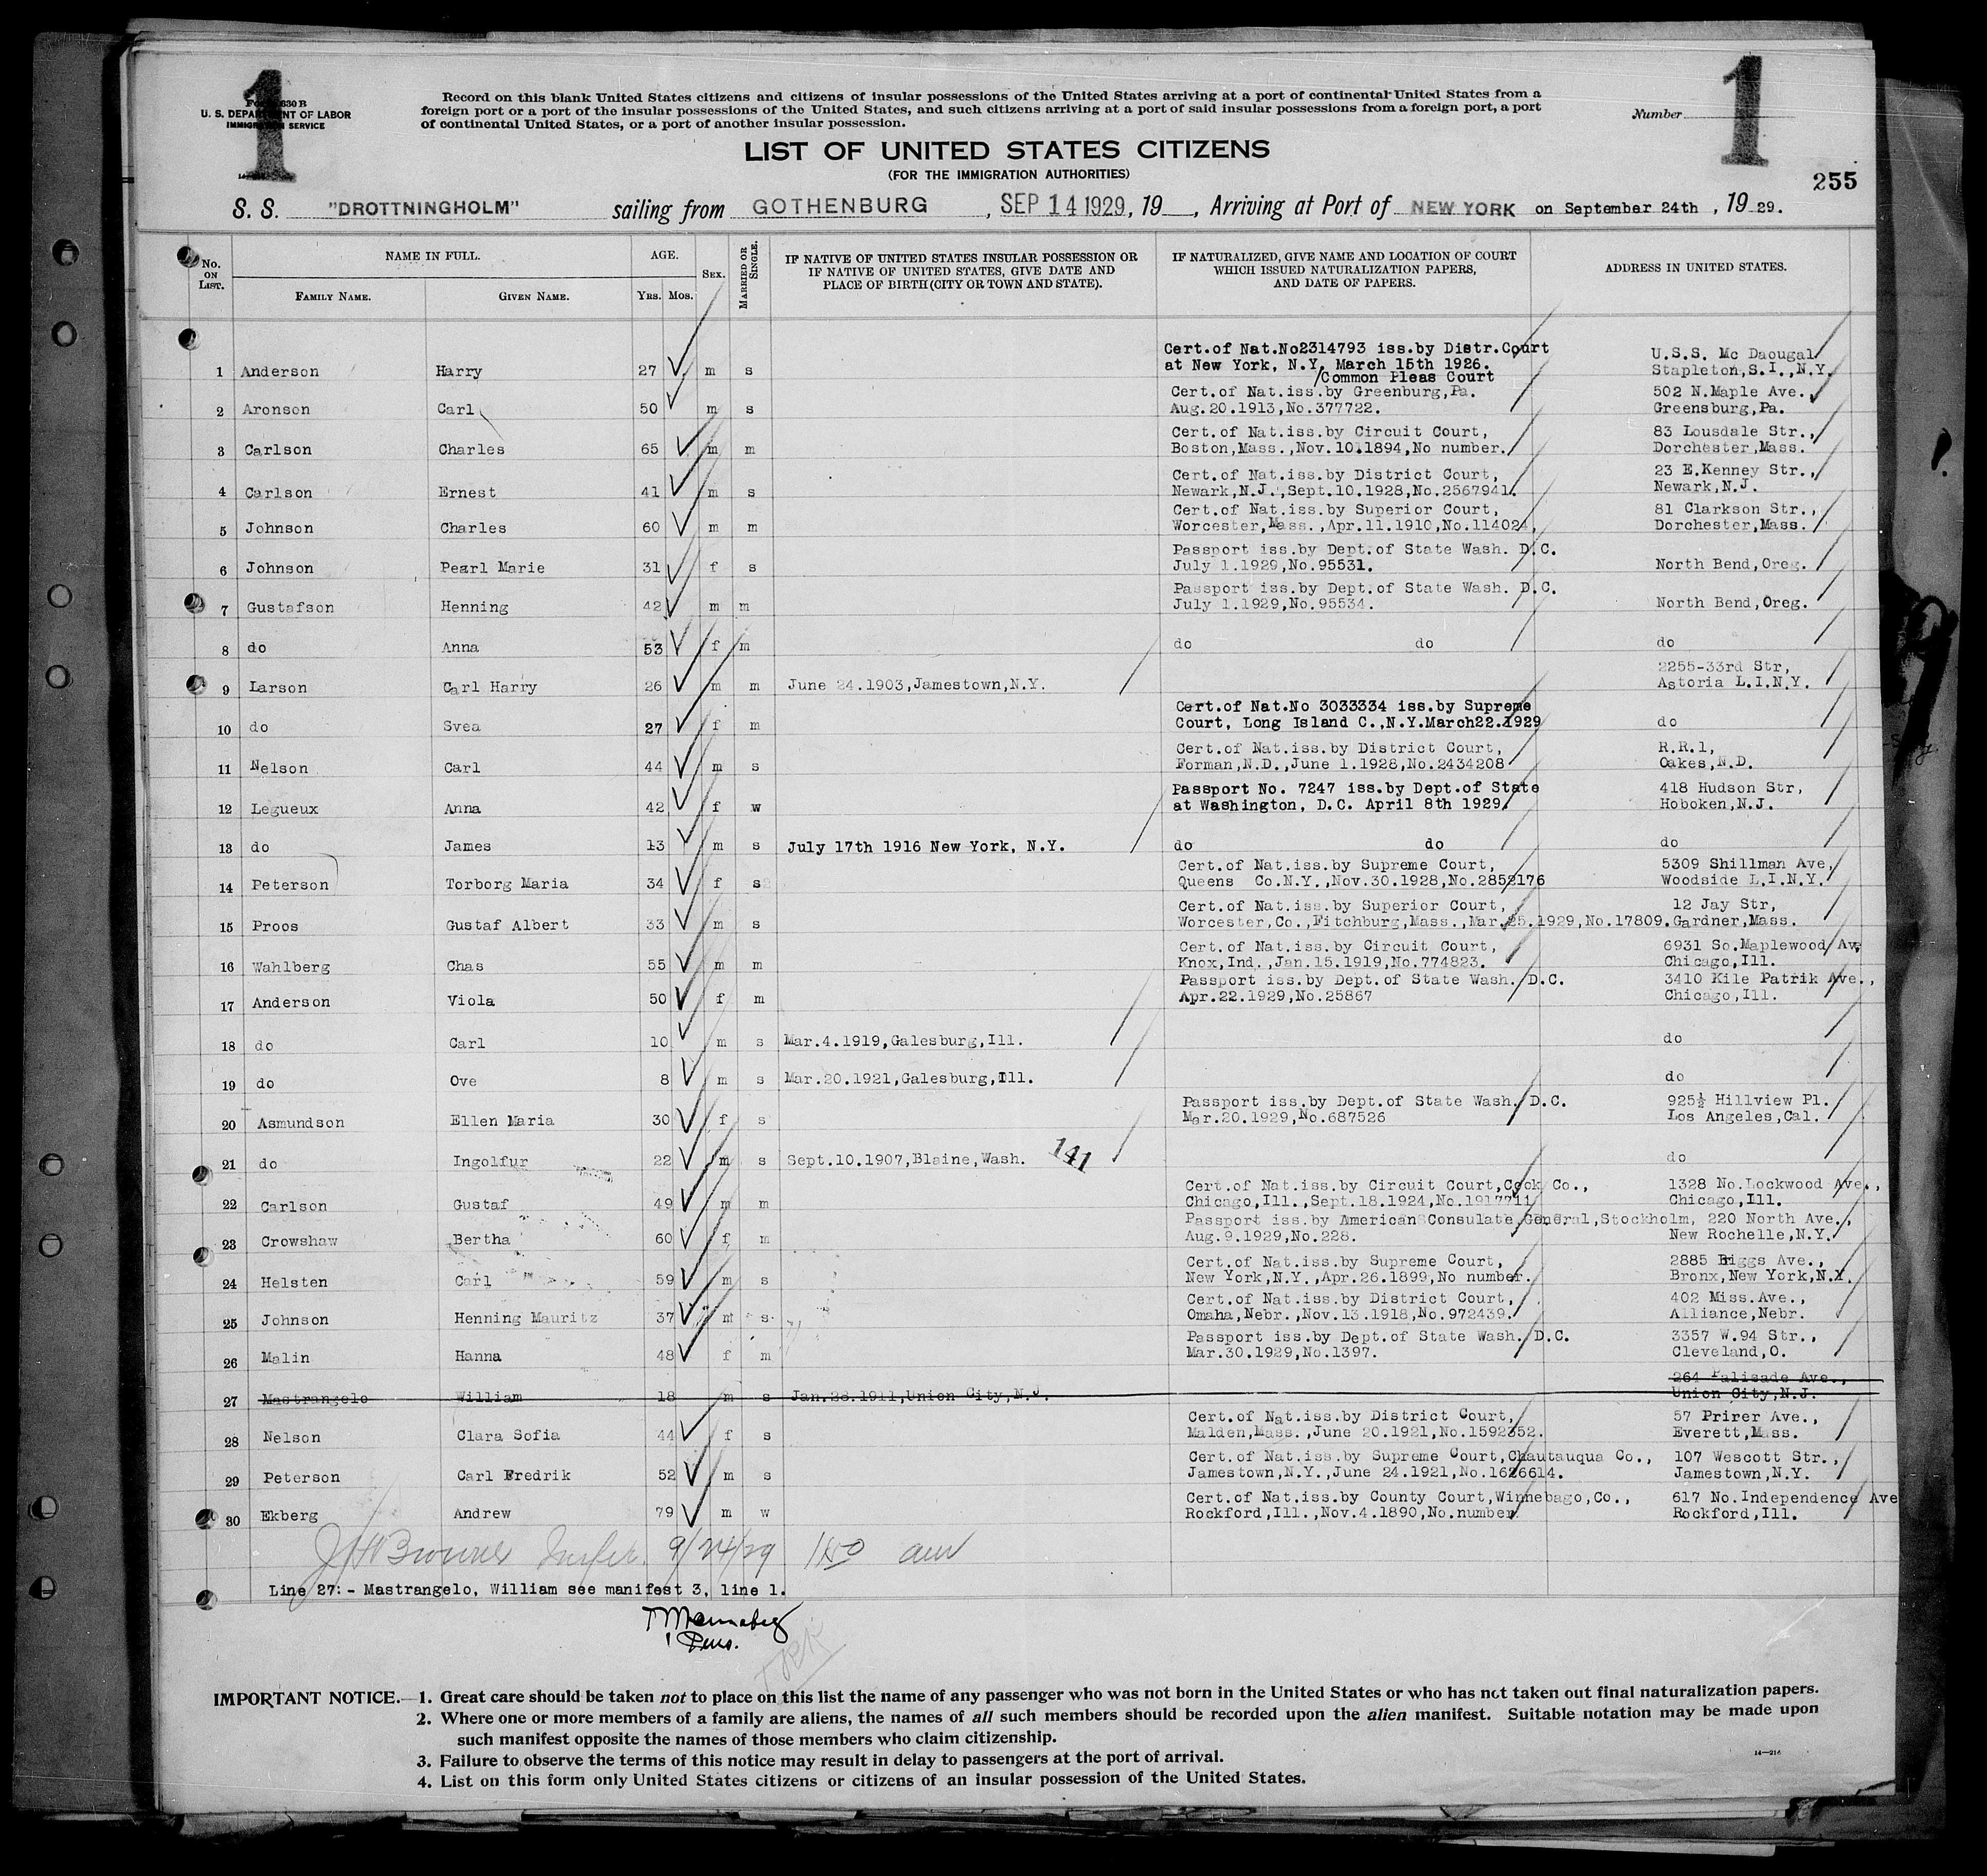 1
1
Form 630 B
U. S. DEPARTMENT OF LABOR
IMMIGRATION SERVICE
Record on this blank United States citizens and citizens of insular possessions of the United States arriving at a port of continental United States from a
foreign port or a port of the insular possessions of the United States, and such citizens arriving at a port of said insular possessions from a foreign port, a port
of continental United States, or a port of another insular possession.
Number
LIST OF UNITED STATES CITIZENS
(FOR THE IMMIGRATION AUTHORITIES)
255
S. S. "DROTTNINGHOLM" sailing from GOTHENBURG, SEP 14 1929, 19 , Arriving at Port of NEW YORK on September 24th, 19 29.
No. ON LIST. NAME IN FULL. AGE. SEX. MARRIED OR SINGLE. IF NATIVE OF UNITED STATES INSULAR POSSESSION OR IF NATIVE OF UNITED STATES, GIVE DATE AND PLACE OF BIRTH (CITY OR TOWN AND STATE). IF NATURALIZED, GIVE NAME AND LOCATION OF COURT WHICH ISSUED NATURALIZATION PAPERS, AND DATE OF PAPERS. ADDRESS IN UNITED STATES.
FAMILY NAME. GIVEN NAME. YRS. MOS.
Cert.of Nat.No2314793 iss.by Distr.Court U.S.S. Mc Daougal
1 Anderson Harry 27 m s at New York, N.Y. March 15th 1926. Stapleton,S.I.,N.Y.
/Common Pleas Court
Cert.of Nat.iss.by Greenburg,Pa. 502 N.Maple Ave.,
2 Aronson Carl 50 m s Aug.20.1913,No.377722. Greensburg,Pa.
Cert.of Nat.iss.by Circuit Court, 83 Lousdale Str.,
3 Carlson Charles 65 m m Boston,Mass.,Nov.10.1894,No number. Dorchester,Mass.
Cert.of Nat.iss.by District Court, 23 E.Kenney Str.,
4 Carlson Ernest 41 m s Newark,N.J.,Sept.10.1928,No.2567941. Newark,N.J.
Cert.of Nat.iss.by Superior Court, 81 Clarkson Str.,
5 Johnson Charles 60 m m Worcester,Mass.,Apr.11.1910,No.114024, Dorchester,Mass.
Passport iss.by Dept.of State Wash. D.C.
6 Johnson Pearl Marie 31 f s July 1.1929,No.95531. North Bend,Oreg.
Passport iss.by Dept.of State Wash. D.C.
7 Gustafson Henning 42 m m July 1.1929,No.95534. North Bend,Oreg.
8 do Anna 53 f m do do do
2255-33rd Str,
9 Larson Carl Harry 26 m m June 24.1903,Jamestown,N.Y. Astoria L.I.N.Y.
Cert.of Nat.No 3033334 iss.by Supreme
10 do Svea 27 f m Court, Long Island C.,N.Y.March22.1929 do
Cert.of Nat.iss.by District Court, R.R.1,
11 Nelson Carl 44 m s Forman,N.D.,June 1.1928,No.2434208 Oakes,N.D.
Passport No. 7247 iss.by Dept.of State 418 Hudson Str,
12 Legueux Anna 42 f w at Washington, D.C. April 8th 1929. Hoboken,N.J.
13 do James 13 m s July 17th 1916 New York, N.Y. do do do
Cert.of Nat.iss.by Supreme Court, 5309 Shillman Ave,
14 Peterson Torborg Maria 34 f s Queens Co.N.Y.,Nov.30.1928,No.2852176 Woodside L.I.N.Y.
Cert.of Nat.iss.by Superior Court, 12 Jay Str,
15 Proos Gustaf Albert 33 m s Worcester,Co.,Fitchburg,Mass.,Mar.25.1929,No.17809. Gardner,Mass.
Cert.of Nat.iss.by Circuit Court, 6931 So.Maplewood Av,
16 Wahlberg Chas 55 m m Knox,Ind.,Jan.15.1919,No.774823. Chicago,Ill.
Passport iss.by Dept.of State Wash. D.C. 3410 Kile Patrik Ave.,
17 Anderson Viola 50 f m Apr.22.1929,No.25867 Chicago,Ill.
18 do Carl 10 m s Mar.4.1919,Galesburg,Ill. do
19 do Ove 8 m s Mar.20.1921,Galesburg,Ill. do
Passport iss.by Dept.of State Wash. D.C. 925½ Hillview Pl.
20 Asmundson Ellen Maria 30 f s Mar.20.1929,No.687526 Los Angeles,Cal.
21 do Ingolfur 22 m s Sept.10.1907,Blaine,Wash. 141 do
Cert.of Nat.iss.by Circuit Court,Cook Co., 1328 No.Lockwood Ave.,
22 Carlson Gustaf 49 m m Chicago,Ill.,Sept.18.1924,No.1917711 Chicago,Ill.
Passport iss.by American Consulate General,Stockholm, 220 North Ave.,
23 Crowshaw Bertha 60 f m Aug.9.1929,No.228. New Rochelle,N.Y.
Cert.of Nat.iss.by Supreme Court, 2885 Briggs Ave.,
24 Helsten Carl 59 m s New York,N.Y.,Apr.26.1899,No number. Bronx,New York,N.Y.
Cert.of Nat.iss.by District Court, 402 Miss.Ave.,
25 Johnson Henning Mauritz 37 m s Omaha,Nebr.,Nov.13.1918,No.972439. Alliance,Nebr.
Passport iss.by Dept.of State Wash. D.C. 3357 W.94 Str.,
26 Malin Hanna 48 f m Mar.30.1929,No.1397. Cleveland,O.
264 Palisade Ave.,
27 Mastrangelo William 18 m s Jan.28.1911,Union City,N.J. Union City,N.J.
Cert.of Nat.iss.by District Court, 57 Prirer Ave.,
28 Nelson Clara Sofia 44 f s Malden,Mass.,June 20.1921,No.1592352. Everett,Mass.
Cert.of Nat.iss.by Supreme Court,Chautauqua Co., 107 Wescott Str.,
29 Peterson Carl Fredrik 52 m s Jamestown,N.Y.,June 24.1921,No.1626614. Jamestown,N.Y.
Cert.of Nat.iss.by County Court,Winnebago,Co., 617 No.Independence Ave
30 Ekberg Andrew 79 m w Rockford,Ill.,Nov.4.1890,No.number Rockford,Ill.
9/24/29
Line 27:- Mastrangelo, William see manifest 3, line 1.
IMPORTANT NOTICE.—1. Great care should be taken not to place on this list the name of any passenger who was not born in the United States or who has not taken out final naturalization papers.
2. Where one or more members of a family are aliens, the names of all such members should be recorded upon the alien manifest. Suitable notation may be made upon
such manifest opposite the names of those members who claim citizenship.
3. Failure to observe the terms of this notice may result in delay to passengers at the port of arrival.
4. List on this form only United States citizens or citizens of an insular possession of the United States.
14—216